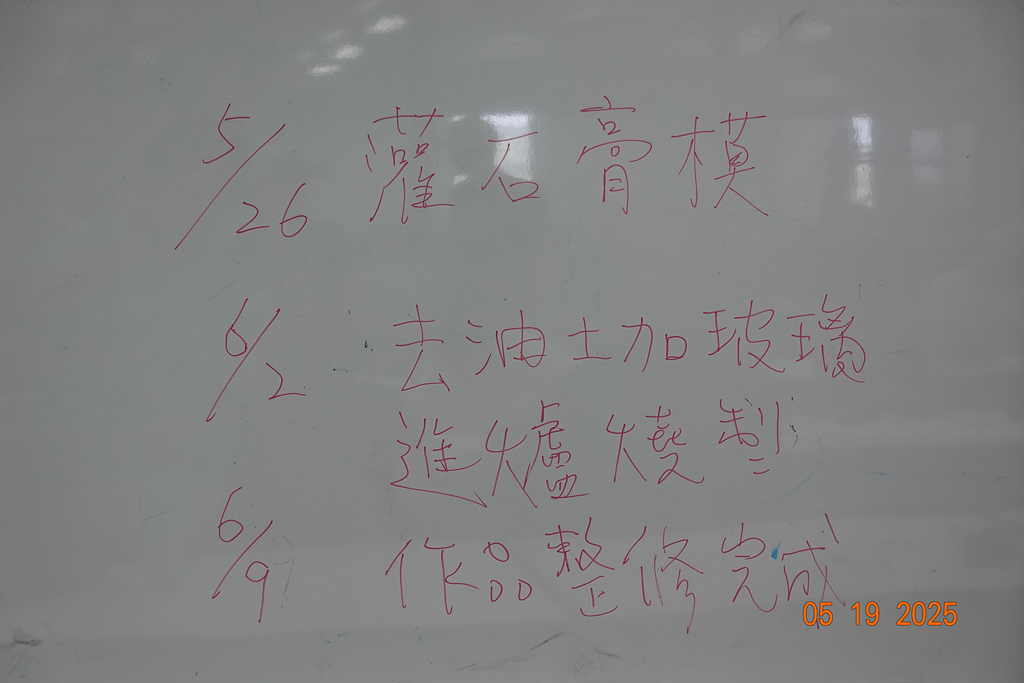 5/26 灌石膏模
6/2 去油土加玻璃
進爐燒製
6/9 作品整修完成
05 19 2025